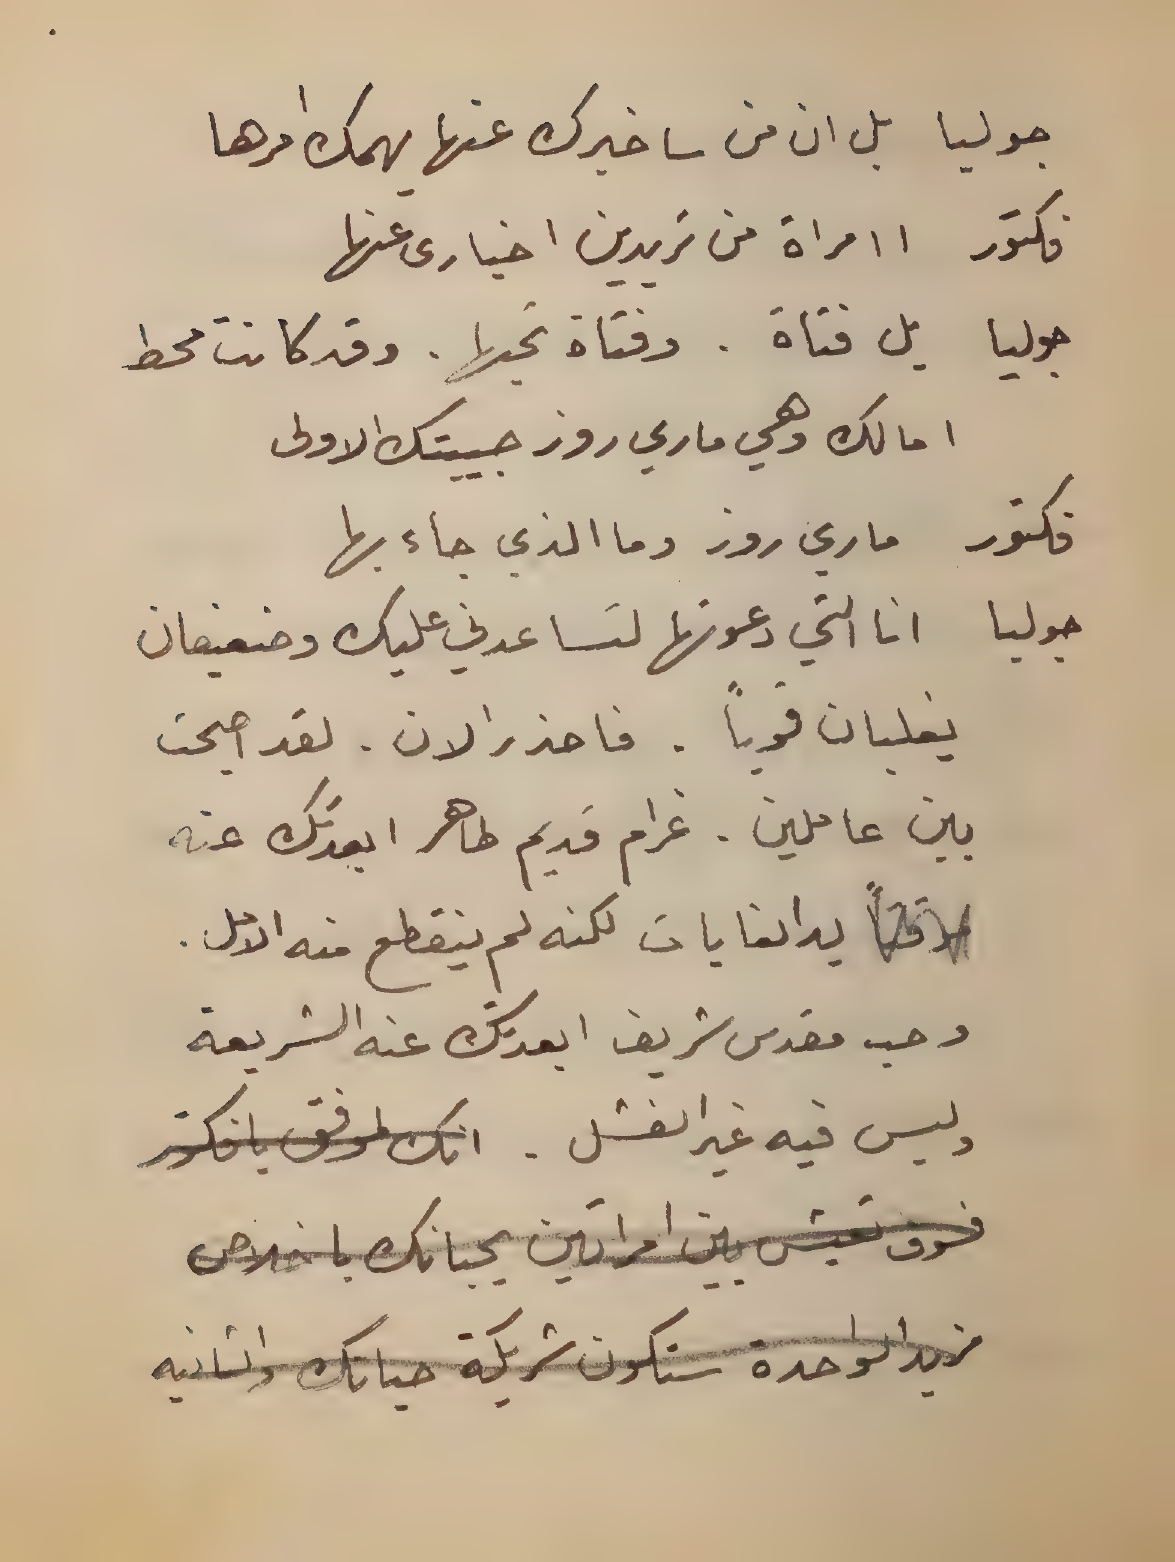 جوليا بل ان من ساخبرك عنها يهمك امرها
فكتور اامراة من تريدين اخباري عنها
جوليا بل فتاة . وفتاة تحبها . وقد كانت محط
امالك وهي ماري روز حبيبتك الاولى
فكتور ماري روز وما الذي جاء بها
جوليا انا التي دعوتها لتساعدني عليك وضعيفان
يغلبان قوياً . فاحذر الان . لقد اصبحت
بين عاملين . غرام قديم طاهر ابعدتك عنه
يد الغايات لكنه لم ينقطع منه الامل .
وحب مقدس شريف ابعدتك عنه الشريعة
وليس فيه غير الفشل . انك لموفق يا فكتور
فسوف تعيش بين امراتين يحبانك باخلاص
الواحدة ستكون شريكة حياتك والثانيه